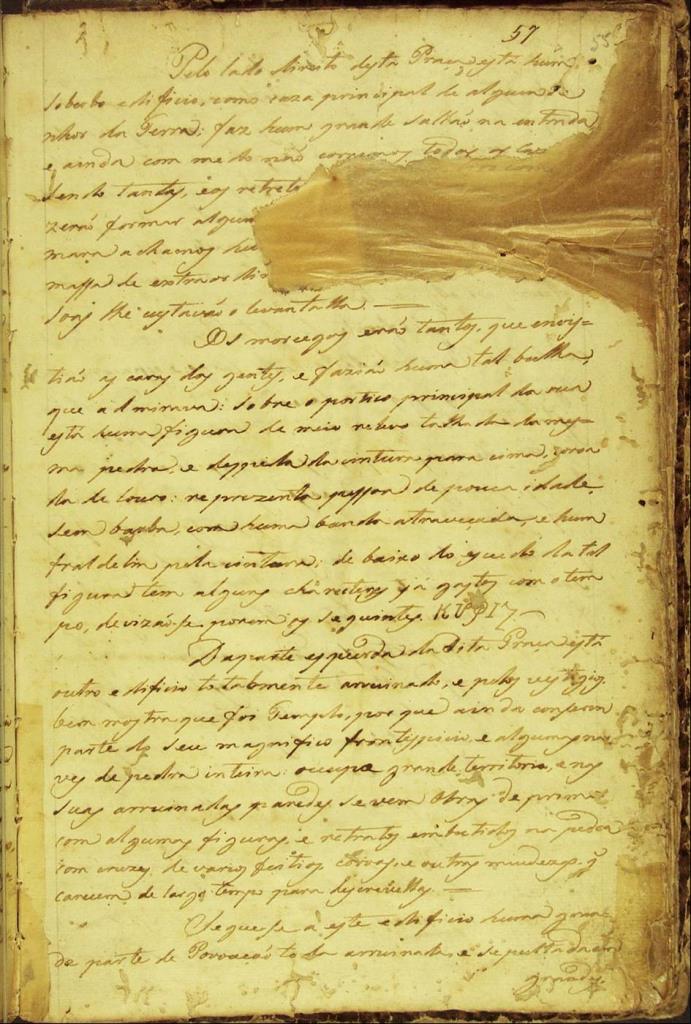 57
Pelo lado direito desta Praça está hum
soberbo edificio, como caza principal de algum Se
nhor da Terra: faz hum grande sallaõ na entrada
e ainda com medo naõ corremos todas as caz
sendo tantas, e os retret
zeraõ formar algum
mara achamos hu
massa de extraordin
soas lhe custavaõ o levantalla. —
Os morcegos eraõ tantos, que envis=
tiaõ as caras das gentes, e faziaõ huma tal bulha,
que admirava: sobre o portico principal da rua
está huma figura de meio relevo talhada da mes=
ma pedra, e despida da cintura para cima, coroa
da de louro: reprezenta pessoa de pouca idade,
sem barba, com huma banda atraveçada, e hum
fraldelim pela cintura: debaixo do escudo da tal
figura tem alguns charecteres já gastos com o tem
po, devizaõ-se porem os seguintes
Da parte esquerda da dita Praça está
outro edificio totalmente arruinado, e pelos vestigios
bem mostra que foi Templo, porque ainda conserva
parte do seu magnifico frontespicio, e algumas na
ves de pedra inteira: occupa grande territorio, e nas
suas arruinadas paredes se vem obras de primor
com algumas figuras, e retratos embutidos na pedra
com cruzes de varios feitios, corvos, e outras miudezas, q
carecem de largo tempo para descrevellas. —
Segue-se a este edificio huma gran
de parte de Povoaçaõ toda arruinada, e sepultada em
grandes